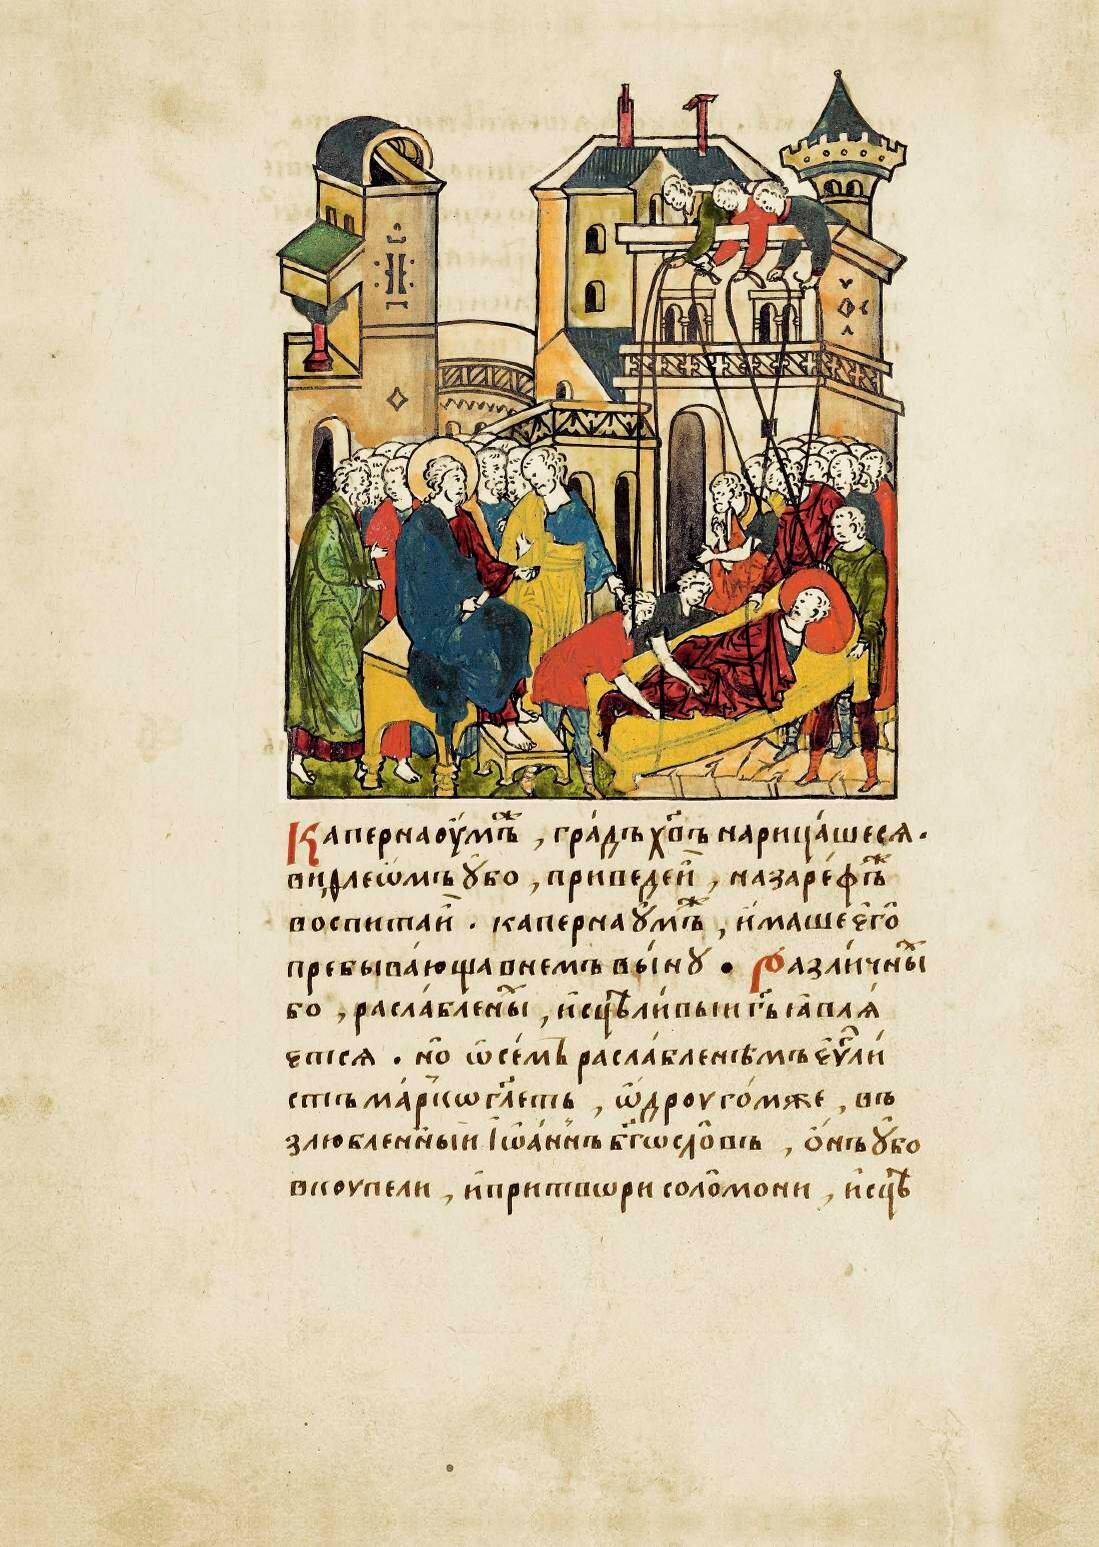 Капернаꙋ́мъⷤ, гра́дъ хв҃ъ нарица́шеся.
виѳлеѡ́мъ ᲂу҆́бо, приведе́й, назаре́ѳъⷤ
воспита́й. капернаᲂу́мъⷤ, и҆́маше є҆го̀
пребыва́юща в не́мъ вы́нꙋ. Разли́чныⷯ
бо, разсла́бленныⷯ, и҆сцѣли́вый гдⷭ҇ь ꙗ҆вля́
ется. но̀ ѡ҆ се́мъ раслабленнѣмъ є҆ѵⷢ҇ли́
стъ ма́рко гл҃етъ, ѡ҆ дрꙋго́мже, въ
злю́бленный і҆ѡа́ннъ бг҃осло́въ, ѻ҆́нъ ᲂу҆́бо
в кꙋпели, и҆ притвори соломони, и҆сцѣ